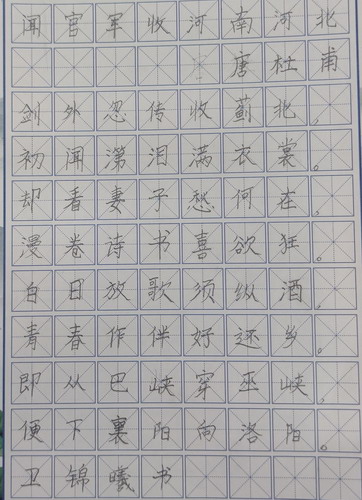 闻官军收河南河北
唐杜甫
剑外忽传收蓟北，
初闻涕泪满衣裳。
却看妻子愁何在，
漫卷诗书喜欲狂。
白日放歌须纵酒，
青春作伴好还乡。
即从巴峡穿巫峡，
便下襄阳向洛阳。
卫锦曦书